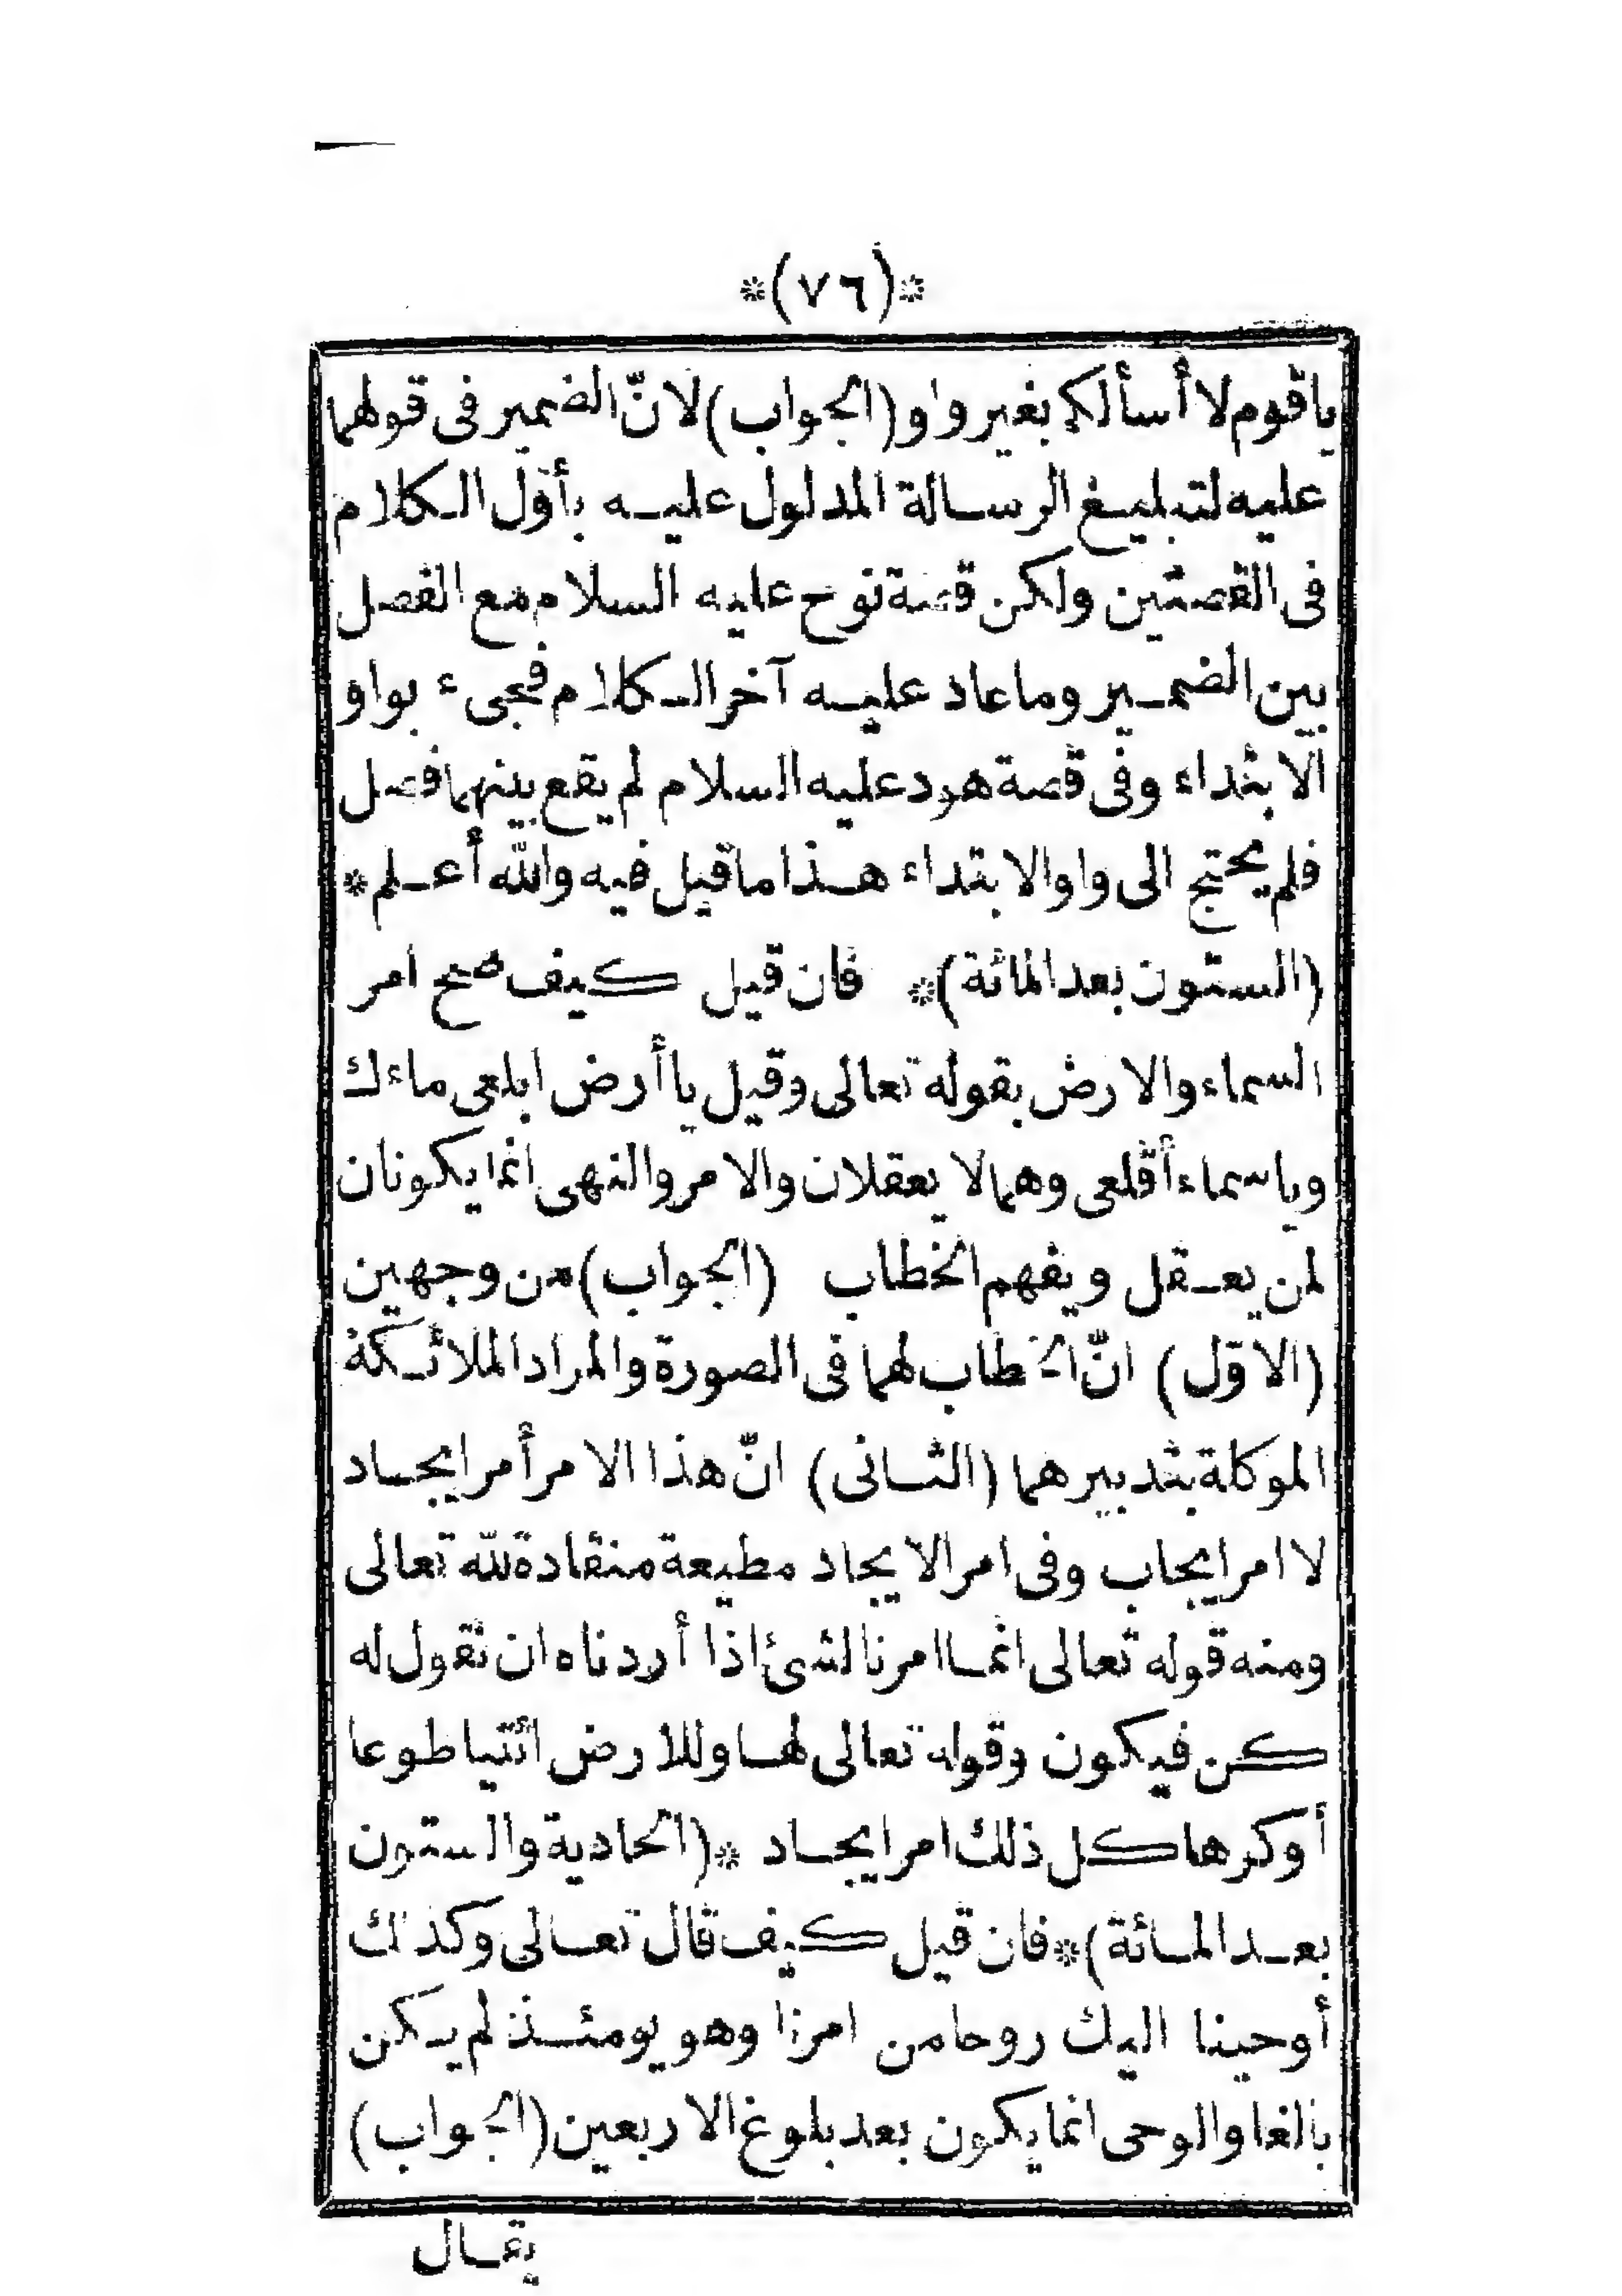 *(٧٦)*
ياقوم لا أسألكم بغير واو (الجواب) لانّ الضمير فى قولهما
عليه لتبليغ الرسالة المدلول عليه بأوّل الكلام
فى القصتين ولكن قصة نوح عليه السلام مع الفصل
بين الضمير وما عاد عليه آخر الكلام فجىء بواو
الابتداء وفى قصة هود عليه السلام لم يقع بينهما فصل
فلم يحتج الى واو الابتداء هذا ما قيل فيه والله أعلم *
(الستون بعد المائة)* فان قيل كيف صح امر
السماء والارض بقوله تعالى وقيل يا أرض ابلعى ماءك
وياسماء أقلعى وهما لا يعقلان والامر والنهى انما يكونان
لمن يعقل ويفهم الخطاب (الجواب) من وجهين
(الاوّل) انّ الخطاب لهما فى الصورة والمراد الملائكة
الموكلة بتدبيرهما (الثانى) انّ هذا الامر أمر ايجاد
لا امر ايجاب وفى امر الايجاد مطيعة منقادة لله تعالى
ومنه قوله تعالى انما امرنا لشئ اذا أردناه ان نقول له
كن فيكون وقوله تعالى لها وللارض ائتيا طوعا
أو كرها كل ذلك امر ايجاد *(الحادية والستون
بعد المائة)* فان قيل كيف قال تعالى وكذلك
أوحينا اليك روحا من امرنا وهو يومئذ لم يكن
بالغا والوحى انما يكون بعد بلوغ الاربعين (الجواب)
يقال